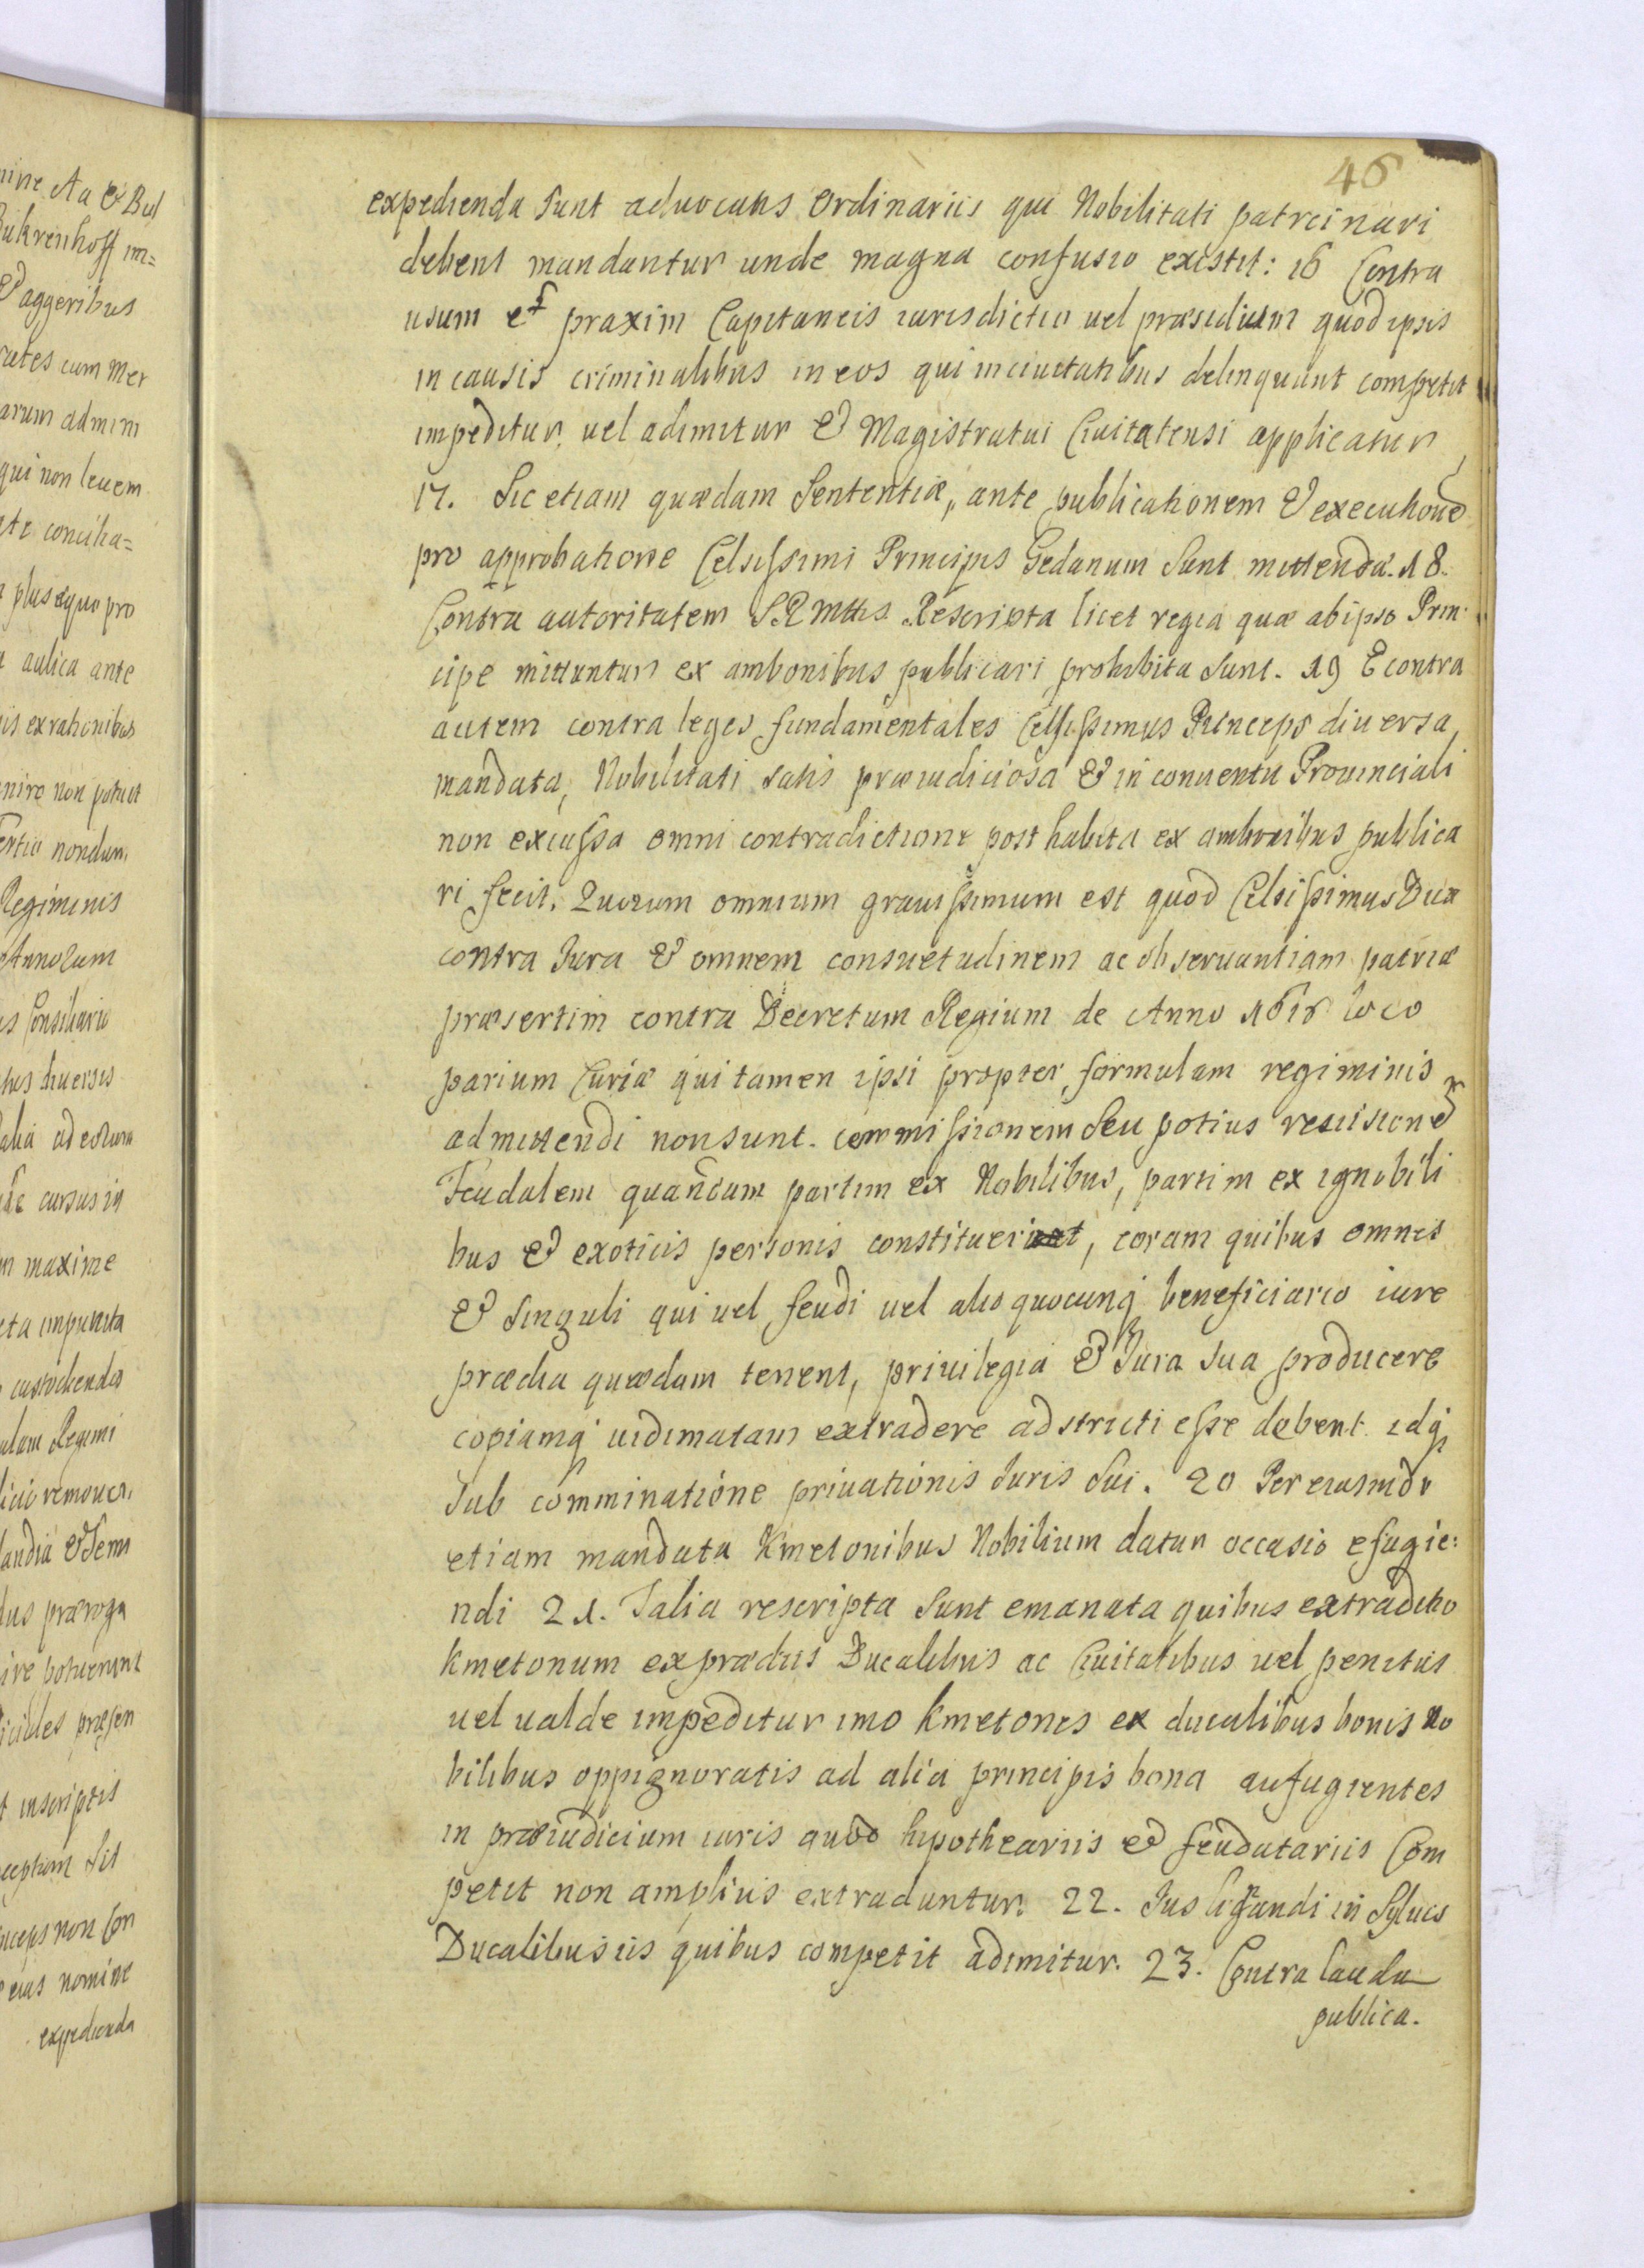 46
expedienda sunt aduocatis Ordinariis qui Nobilitati patrcinari
debent mandantur unde magna confusio existit: 16 Contra
usum et praxim Capitaneis iurisdictio uel præsidium quod ipsis
in causis criminalibus in eos qui in ciuitatibus delinquunt competit
impeditur, uel adimitur & Magistratui Ciuitatensi applicatur
17. Sic etiam quædam Sententiæ, ante publicationem & executione
pro approbatione Celsissimi Principis Gedanum sunt mittenda. 18.
Contra autoritatem S.R Mttis Rescripta licet regia quæ ab ipso Prin
cipe mittuntur ex ambonibus publicari prohibita sunt. 19 E contra
autem contra leges fundamentales Celsissimus Princeps diuersa,
mandata, Nobilitati satis præiudiciosa & in conuentu Prouinciali
non excussa omni contradictione post habita ex ambonibus publica
ri fecit. Quorum omnium grauissimum est quod Celsissimus Dux
contra Iura & omnem consuetudinem ac obseruantiam patriæ
præsertim contra Decretum Regium de Anno loco
parium Curiæ qui tamen ipsi propter formulam regiminis
admittendi non sunt. commissionem Seu potius reuisione
Feudalem quandam partim ex Nobilibus, partim ex ignobili
bus & exoticis personis constituerit, coram quibus omnes
& singuli qui uel feudi uel alio quocunq beneficiario iure
prædia quædam tenent, priuilegia & Iura sua producere
copiamq uidimatam extradere adstricti esse debent idq
Sub comminatione priuationis Iuris Sui. 20 Per eiusmodi
etiam mandata Kmetonibus Nobilium datur occasio efugie:
ndi 21. Talia rescripta sunt emanata quibus extraditio
kmetonum ex prædiis Ducalibus ac Ciuitatibus uel penitus
uel ualde impeditur imo kmetones ex ducalibus bonis No
bilibus oppignoratis ad alia principis bona aufugientes
in præiudicium iuris quod hipotheariis & feudatariis Com
petit non amplius extraduntur. 22. Ius lignandi in Syluis
Ducalibus iis quibus competit adimitur. 23. Contra lauda
publica.